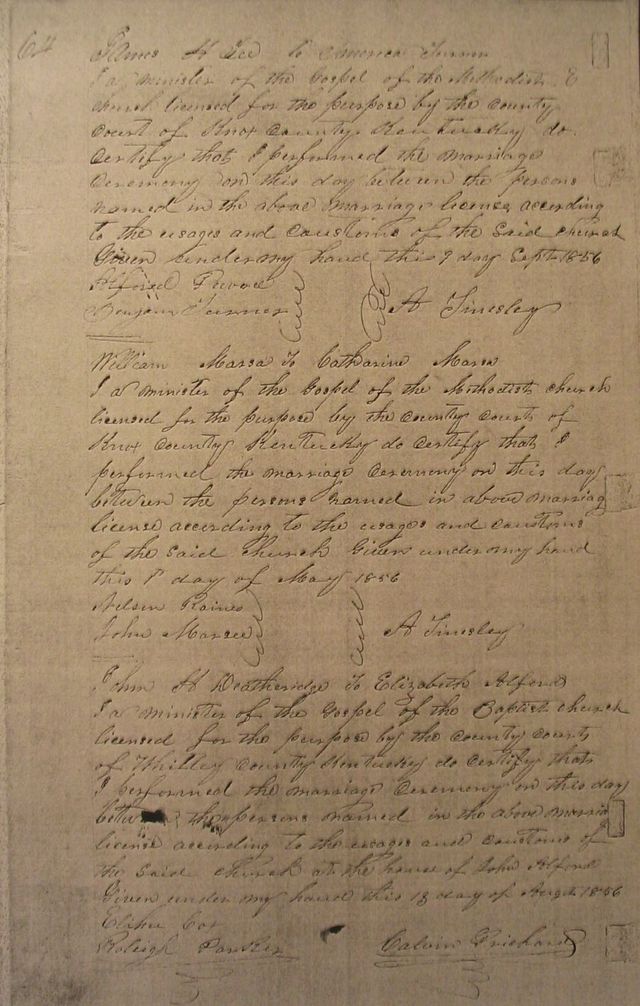 64
James H Lee to America Turner
I a minister of the Gospel of the Methodist E
church licensed for the purpose by the county
court of Knox County Kentucky do
certify that I performed the marriage
ceremony on this day between the persons
named in the above marriage license according
to the usages and customs of the Said church
Given under my hand this 9 day Sept 1856
Alfred
Benjamin Turner A Tinsley
William Marsa to Catharine Marsa
I a minister of the Gospel of the Methodist church
licensed for the purpose by the county courts of
Knox County Kentucky do certify that I
performed the marriage ceremony on this day
between the persons named in above marriag
license according to the usages and customs
of the Said Church Given under my hand
this 1st day of May 1856
Nelson Raines
John Marsee A Tinsley
John H Deatheridge to Elizabeth Alford
I a minister of the Gospel of the Baptist church
licensed for the purpose by the county courts
of Whitley County Kentucky do certify that
I performed the marriage ceremony on this day
between the persons named in the above marria
license according to the usages and customs of
the Said church at the house of John Alford
Given under my hand this 18 day of Augt 1856
Elihu Cox
Raleigh Parker Calvin Prichard